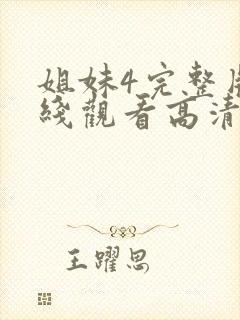 姐妹4完整
綫觀看高清
王躍思